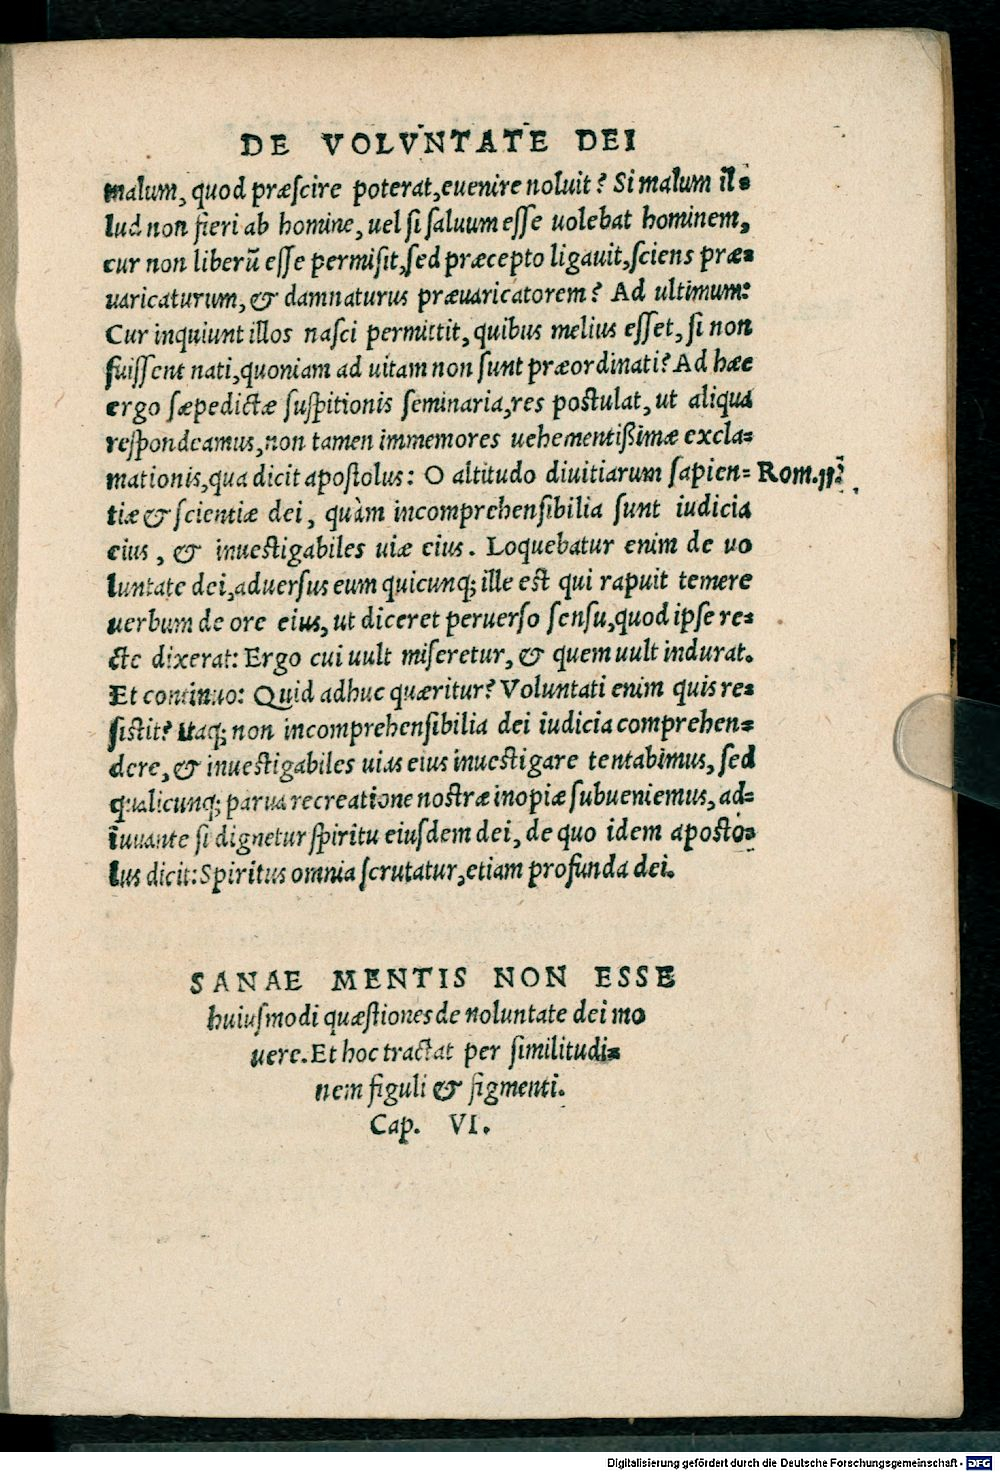 DE VOLVNTATE DEI
malum, quod præscire poterat, euenire noluit? Si malum il=
lud non fieri ab homine, uel si saluum esse uolebat hominem,
cur non liberū esse permisit, sed præcepto ligauit, sciens præ=
uaricaturum, & damnaturus præuaricatorem? Ad ultimum:
Cur inquiunt illos nasci permittit, quibus melius esset, si non
fuissent nati, quoniam ad uitam non sunt præordinati? Ad hæc
ergo sæpedictæ suspitionis seminaria, res postulat, ut aliqua
respondeamus, non tamen immemores uehementißimæ excla=
mationis, qua dicit apostolus: O altitudo diuitiarum sapien= Rom. 11.
tiæ & scientiæ dei, quàm incomprehensibilia sunt iudicia
eius, & inuestigabiles uiæ eius. Loquebatur enim de uo
luntate dei, aduersus eum quicunq; ille est qui rapuit temere
uerbum de ore eius, ut diceret peruerso sensu, quod ipse re=
cte dixerat: Ergo cui uult miseretur, & quem uult indurat.
Et continuo: Quid adhuc quæritur? Voluntati enim quis re=
sistit? Itaq; non incomprehensibilia dei iudicia comprehen=
dere, & inuestigabiles uias eius inuestigare tentabimus, sed
qualicunq; parua recreatione nostræ inopiæ subueniemus, ad=
iuuante si dignetur spiritu eiusdem dei, de quo idem aposto=
lus dicit: Spiritus omnia scrutatur, etiam profunda dei.
SANAE MENTIS NON ESSE
huiusmodi quæstiones de uoluntate dei mo
uere. Et hoc tractat per similitudi=
nem figuli & figmenti.
Cap. VI.
Digitalisierung gefördert durch die Deutsche Forschungsgemeinschaft - DFG